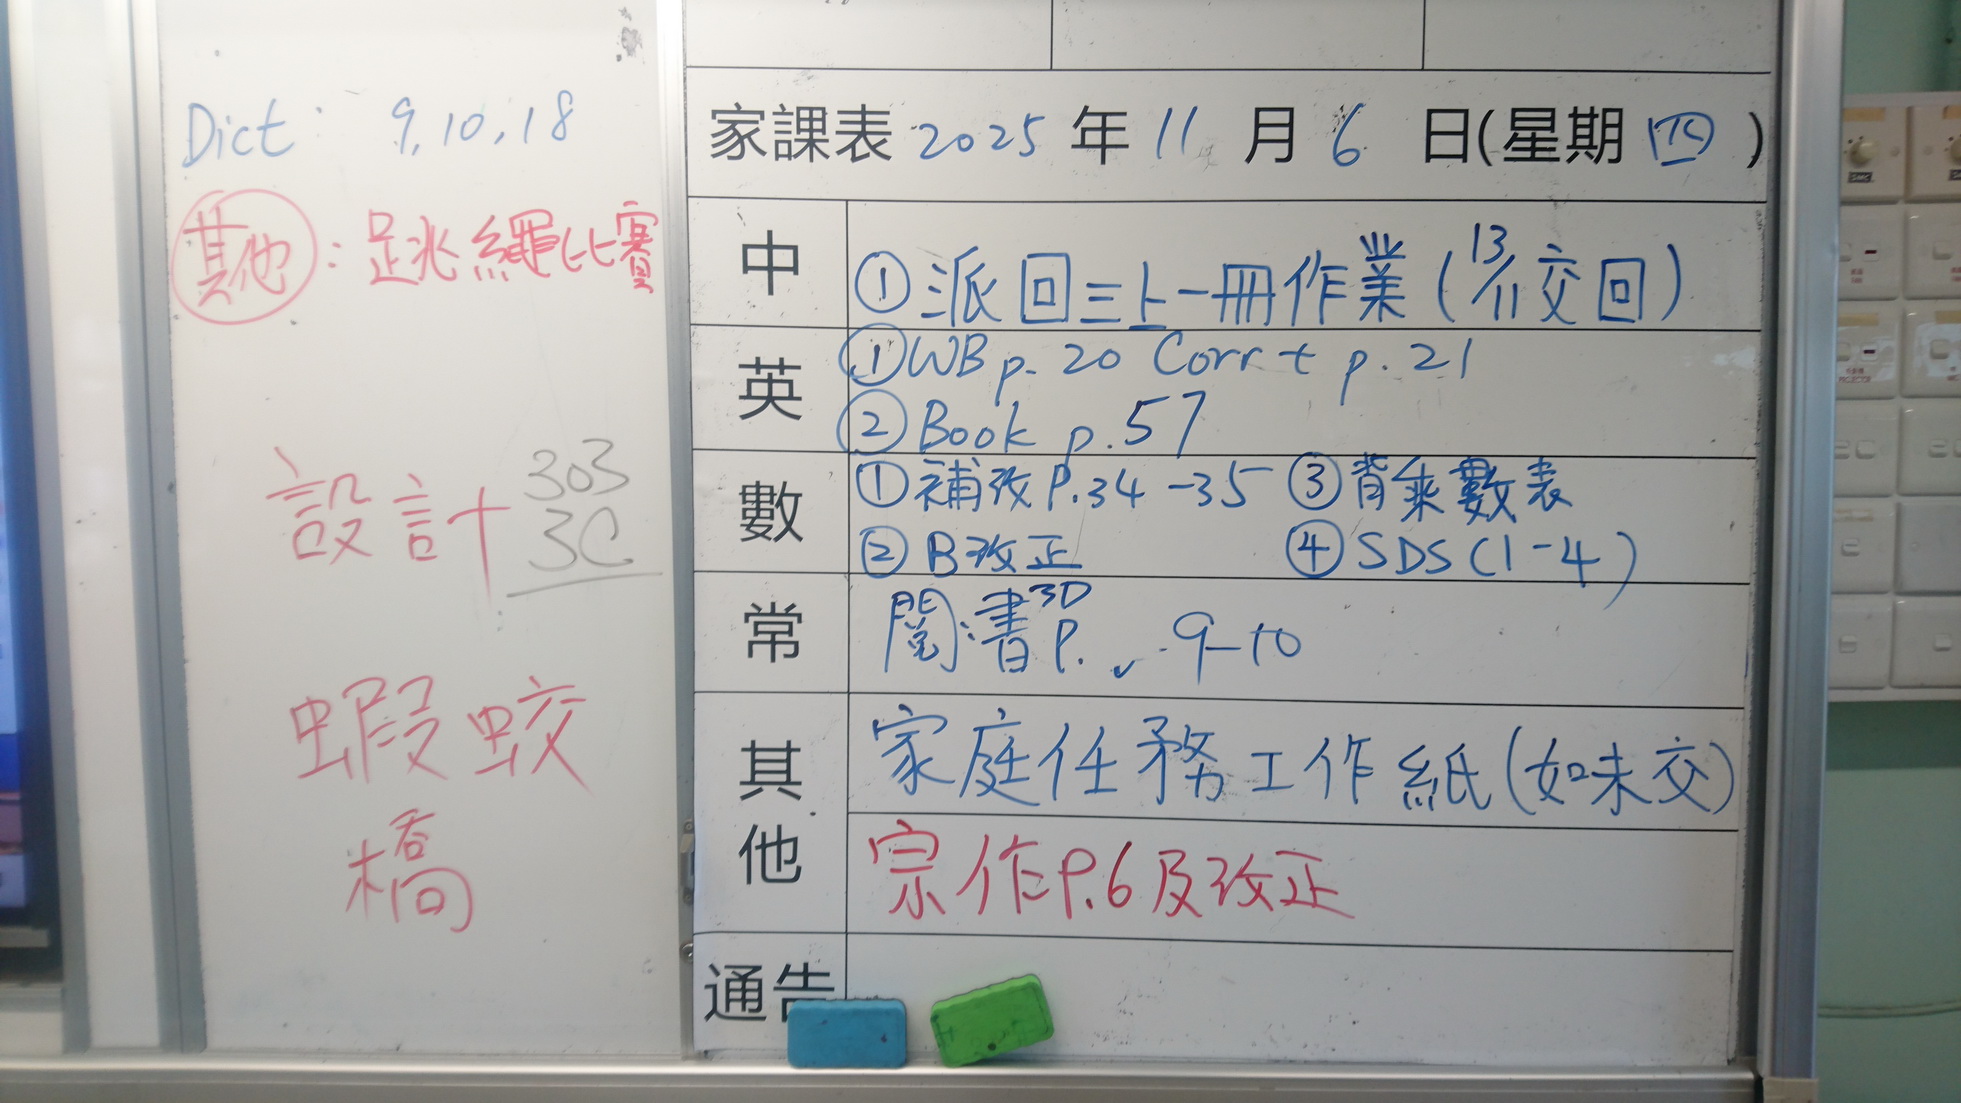 Dict: 9, 10, 18
其他：跳繩比賽
設計
303
3C
蝦蛟
橋
家課表 2025 年 11 月 6 日(星期 四 )
中
①派回三上一冊作業(13/11交回)
英
①WB p. 20 Corr + p. 21
②Book p. 57
數
①補改P.34-35 ③背乘數表
②B改正 ④SDS(1-4)
常
閱書3D P. ✓ 9-10
其他
家庭任務工作紙(如未交)
宗作P.6及改正
通告